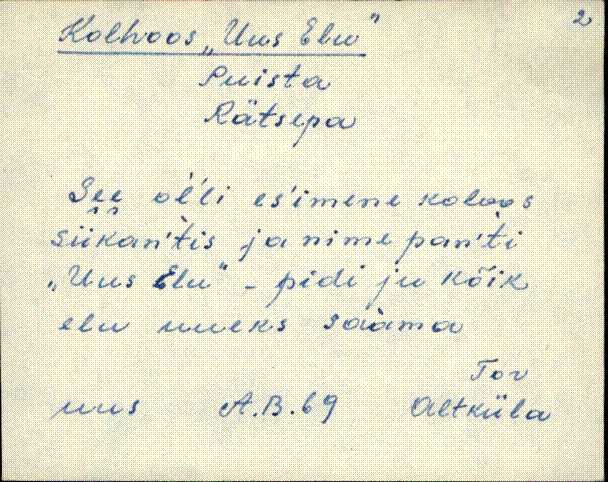 2
Kolhoos „Uus Elu"
Puista
Rätsepa
See ol'li es'imene koloos
siikan'tis ja nime pan'ti
„Uus Elu" - pidi ju kõik
elu uueks saama
Tor
uus A.B.69 Altküla